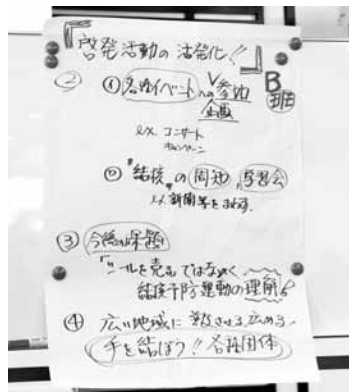 『啓発活動の活発化!!』
② ① 各種イベントへの参加
企画
B班
ex. コンサート
キャンペーン
② "結核"の周知、学習会
ex. 新聞等をまわす。
③ 今後の課題
「シールを売るではなく、
結核予防運動の理解を
④ 広い地域に 普及させる、広める、
手を結ぼう!! 各種団体